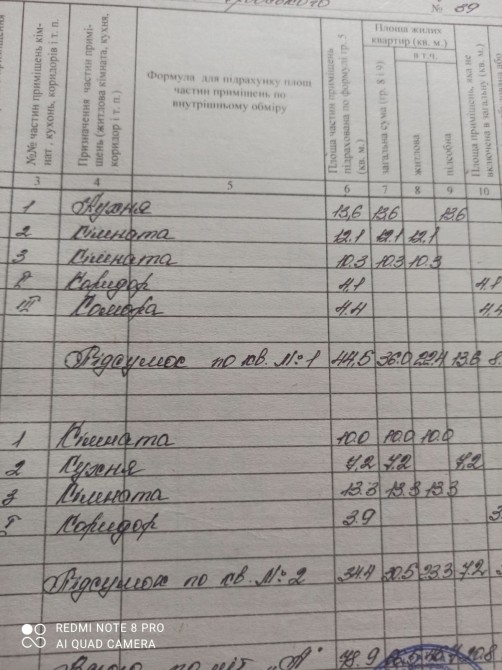 № 89
№№ частин приміщень кім-
нат, кухонь, коридорів і т. п.
Призначення частин примі-
щень (житлова кімната, кухня,
коридор і т. п.)
Формула для підрахунку площ
частин приміщень по
внутрішньому обміру
Площа частин приміщень
підрахована по формулі гр. 5
(кв. м.)
Площа жилих
квартир (кв. м.)
загальна сума (гр. 8 і 9)
в т.ч.
житлова
підсобна
Площа приміщень, яка не
включена в загальну (кв. м.)
3 4 5 6 7 8 9 10
1 Кухня 13,6 13.6 13.6
2 Кімната 12.1 12.1 12.1
3 Кімната 10.3 10.3 10.3
I Коридор 4.1 4.1
III Комора 4.4 4.4
Підсумок по кв. №1 44.5 36.0 22.4 13.6 8.
1 Кімната 10.0 10.0 10.0
2 Кухня 7.2 7.2 7.2
3 Кімната 13.3 13.3 13.3
I Коридор 3.9 3.
Підсумок по кв. №2 34.4 30.5 23.3 7.2
Всього по літ. "А" 78.9 20.8
REDMI NOTE 8 PRO
AI QUAD CAMERA